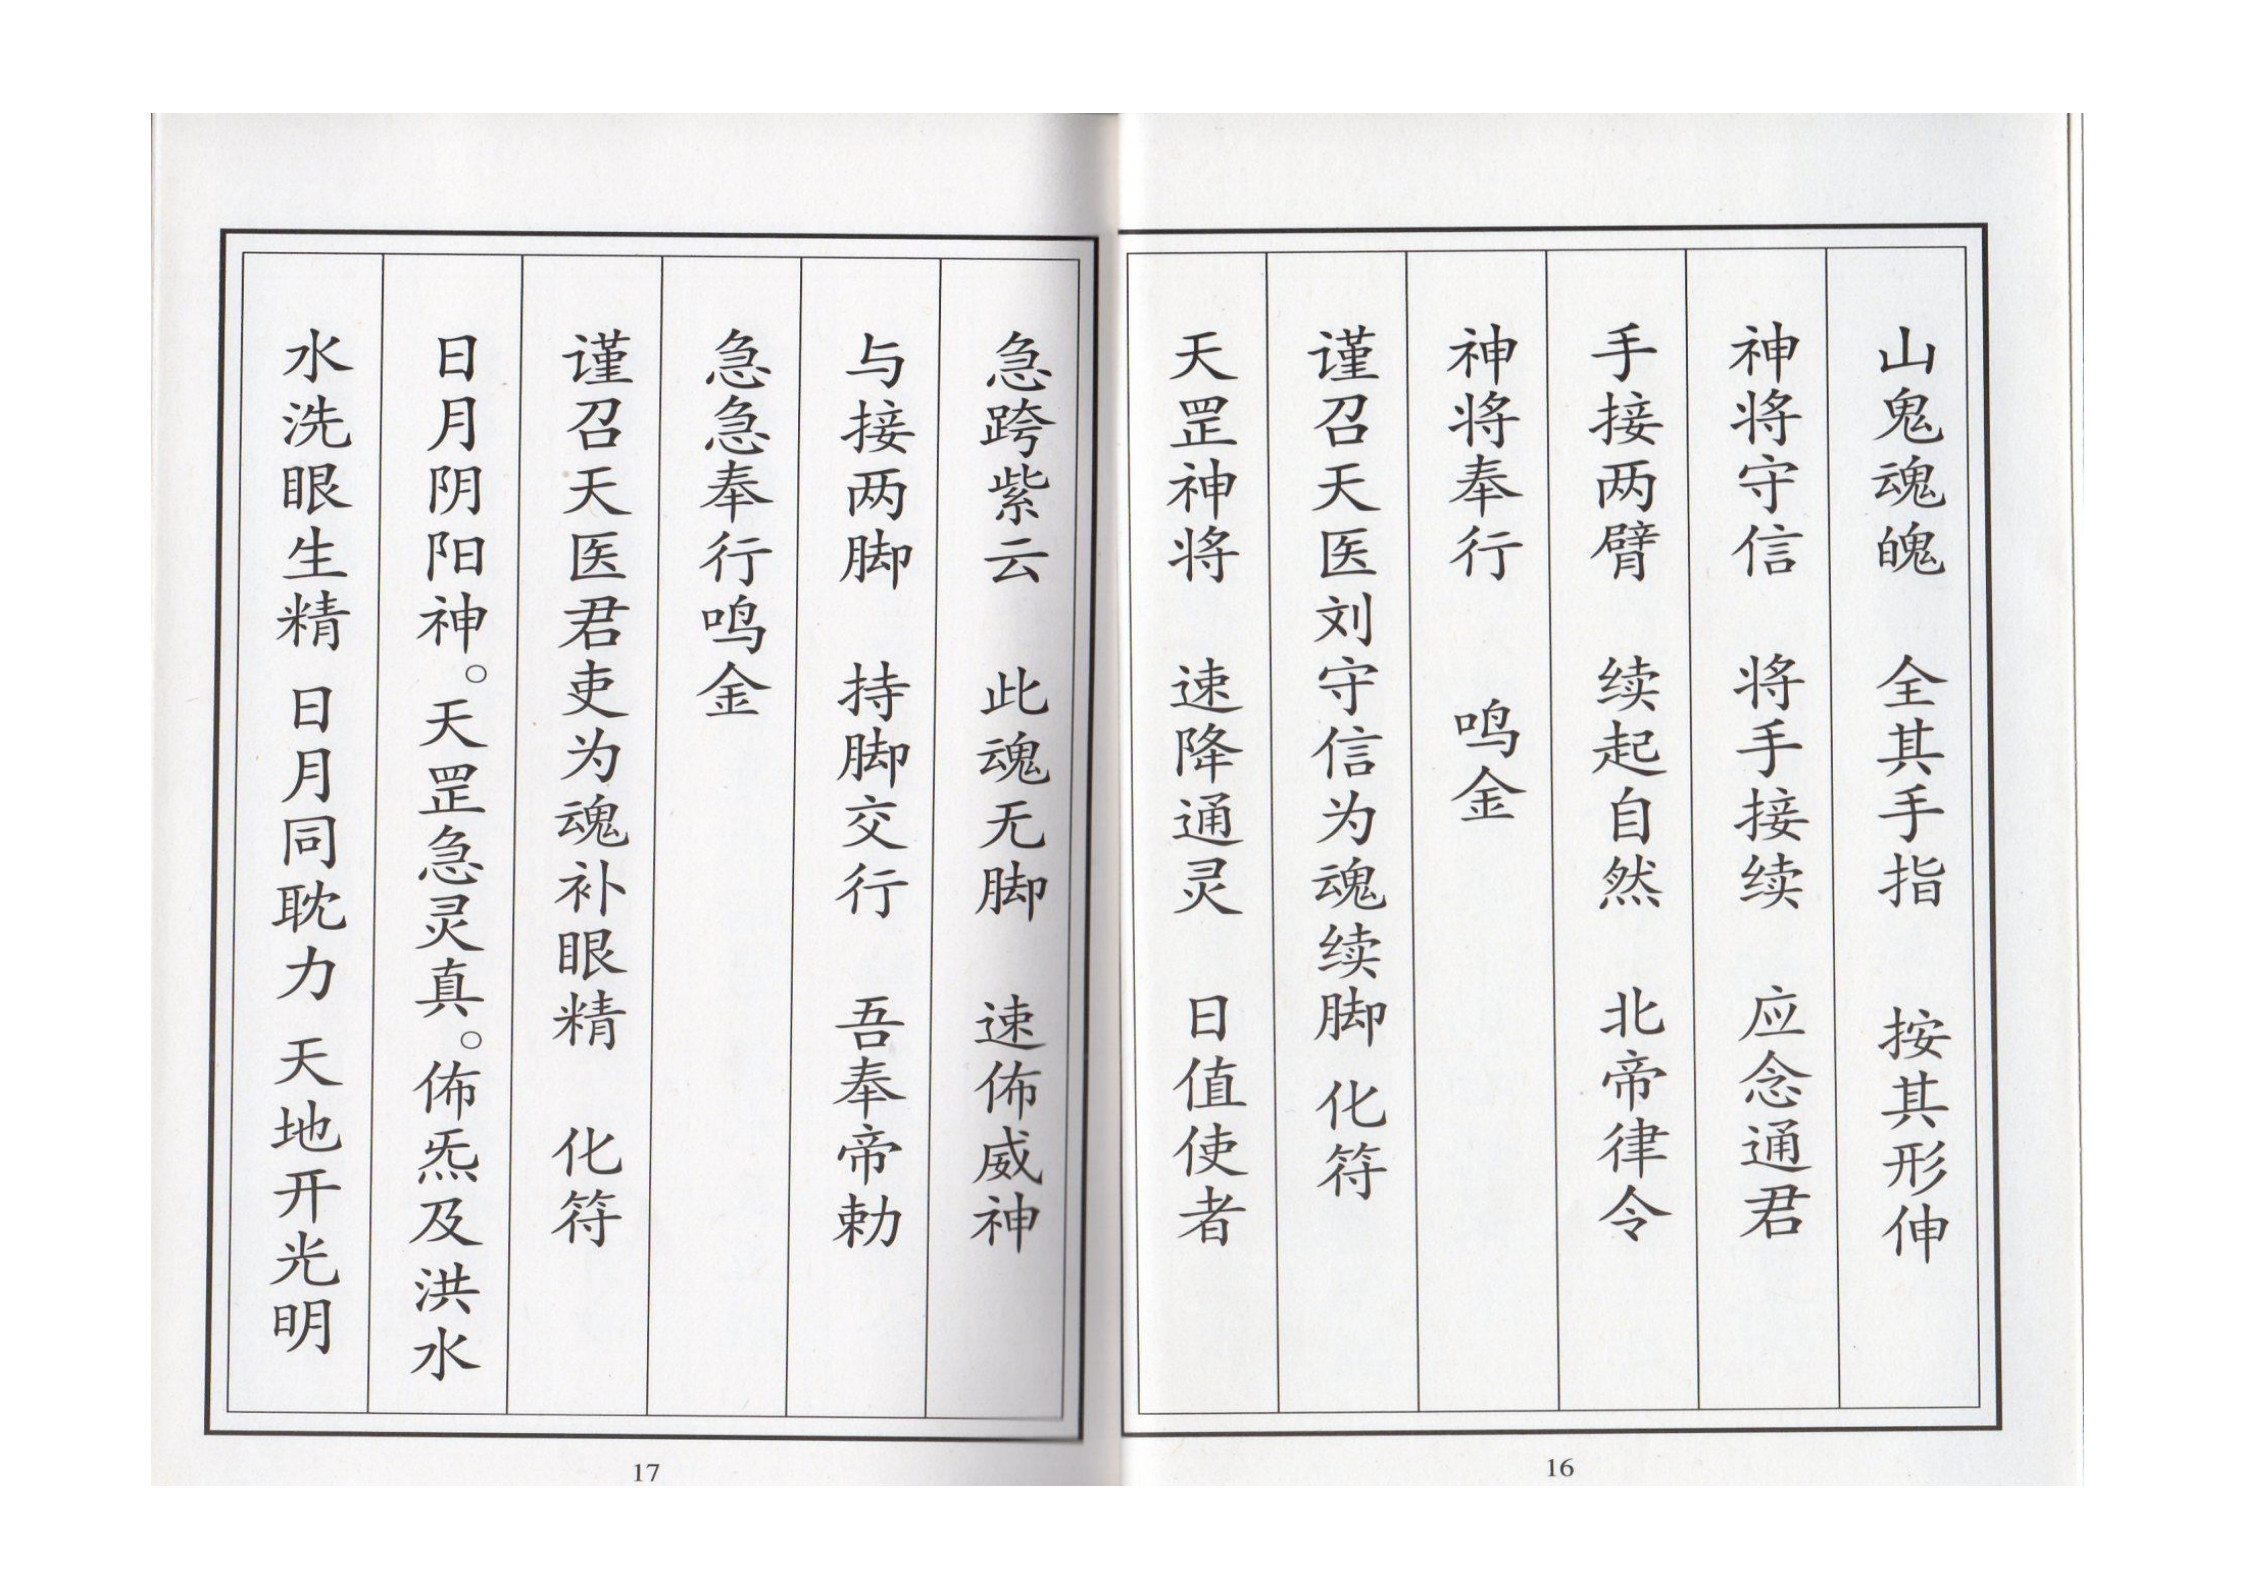 山鬼魂魄　全其手指　按其形伸
神将守信　将手接续　应念通君
手接两臂　续起自然　北帝律令
神将奉行　鸣金
谨召天医刘守信为魂续脚　化符
天罡神将　速降通灵　日值使者
16
急跨紫云　此魂无脚　速佈威神
与接两脚　持脚交行　吾奉帝勅
急急奉行鸣金
谨召天医君吏为魂补眼精　化符
日月阴阳神。天罡急灵真。佈炁及洪水
水洗眼生精　日月同耽力　天地开光明
17